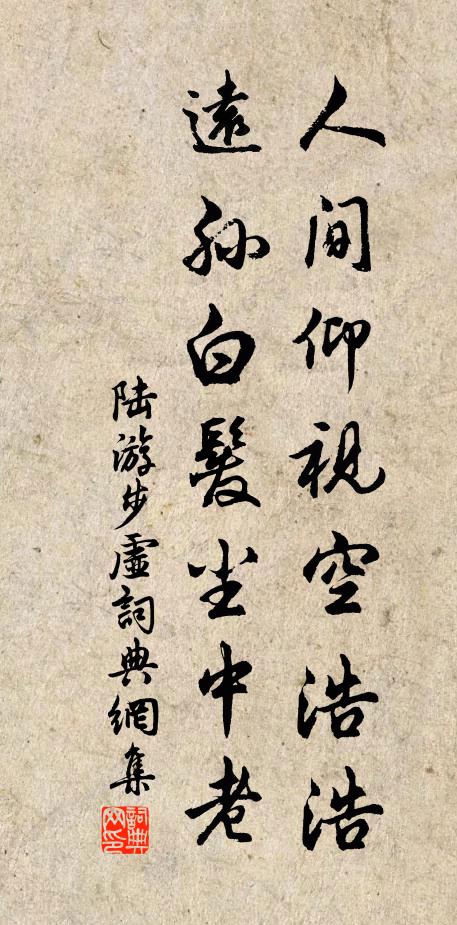 人间仰視空浩浩
遠孙白髮尘中老
陆游步虛詞典網集
詞典网印